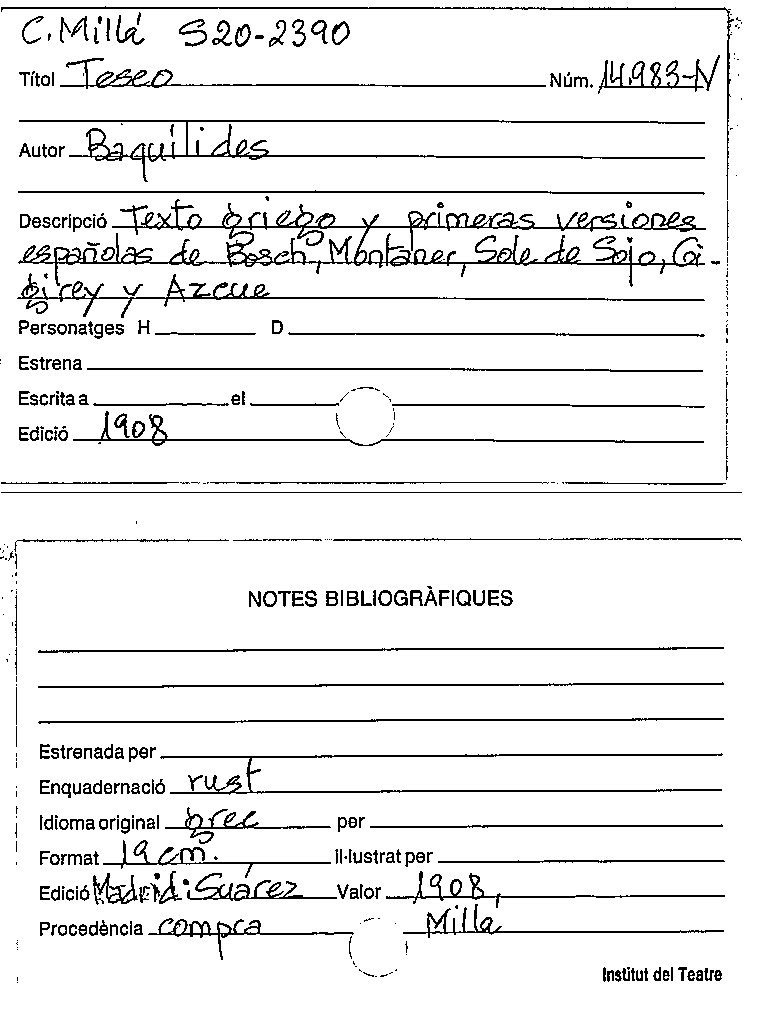 C. Millá S20-2390
Títol Teseo Núm. 14.983-N
Autor Baquílides
Descripció Texto griego y primeras versiones
españolas de Bosch, Montaner, Sole de Sojo, Gi-
birey y Azcue
Personatges H D
Estrena
Escrita a el
Edició 1908
NOTES BIBLIOGRÀFIQUES
Estrenada per
Enquadernació rust
Idioma original grec per
Format 19 cm. il·lustrat per
Edició Madrid: Suárez Valor 1908,
Procedència compra Milla
Institut del Teatre